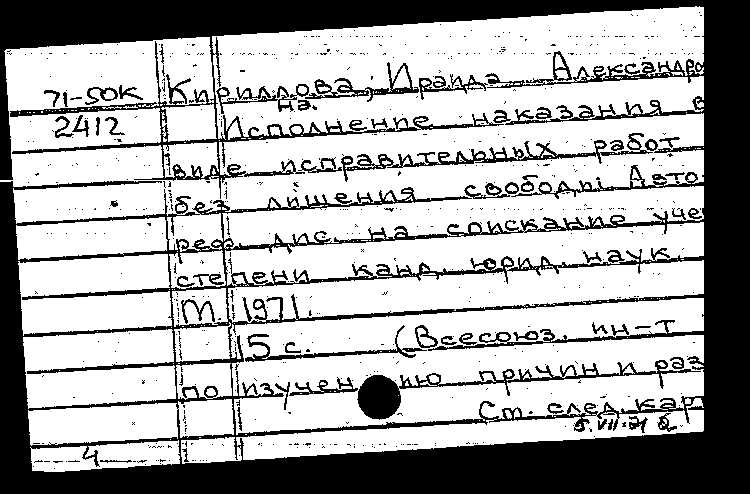 71-50К Кириллова, Ираида Александров
на.
2412 Исполнение наказания в
виде исправительных работ
без лишения свободы. Авто-
реф. дис. на соискание учен
степени канд. юрид. наук.
М. 1971.
15 с. (Всесоюз. ин-т
по изучению причин и раз
Ст. след. карт
5.VII-71
4